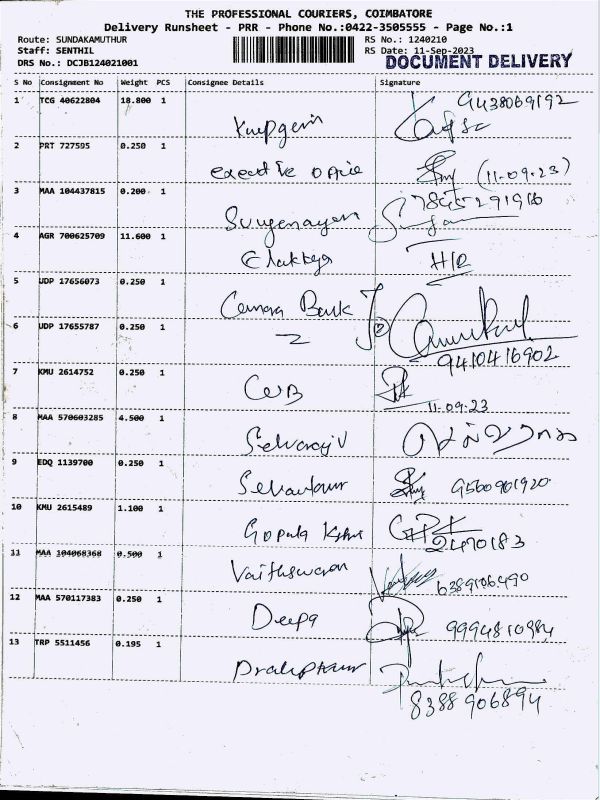 THE PROFESSIONAL COURIERS, COIMBATORE
Delivery Runsheet - PRR - Phone No.:0422-3505555 - Page No.:1
Route: SUNDAKAMUTHUR RS No.: 1240210
Staff: SENTHIL RS Date: 11-Sep-2023
DRS No.: DCJB124021001 DOCUMENT DELIVERY
S No Consignment No Weight PCS Consignee Details Signature
1 TCG 40622804 18.800 1 9438069192
2 PRT 727595 0.250 1 (11.09.23)
3 MAA 104437815 0.200 1 7845291916
4 AGR 700625709 11.600 1 HR
5 UDP 17656073 0.250 1 Canara Bank
6 UDP 17655787 0.250 1 9410416902
7 KMU 2614752 0.250 1 CUB 11.09.23
8 MAA 570603285 4.500 1 Selvaraj V
9 EDQ 1139700 0.250 1 9560901920
10 KMU 2615489 1.100 1 Gopala 2470183
11 MAA 104068368 0.500 1 Vaithswaran 6389106490
12 MAA 570117383 0.250 1 Deepa 9994810984
13 TRP 5511456 0.195 1 8388906894